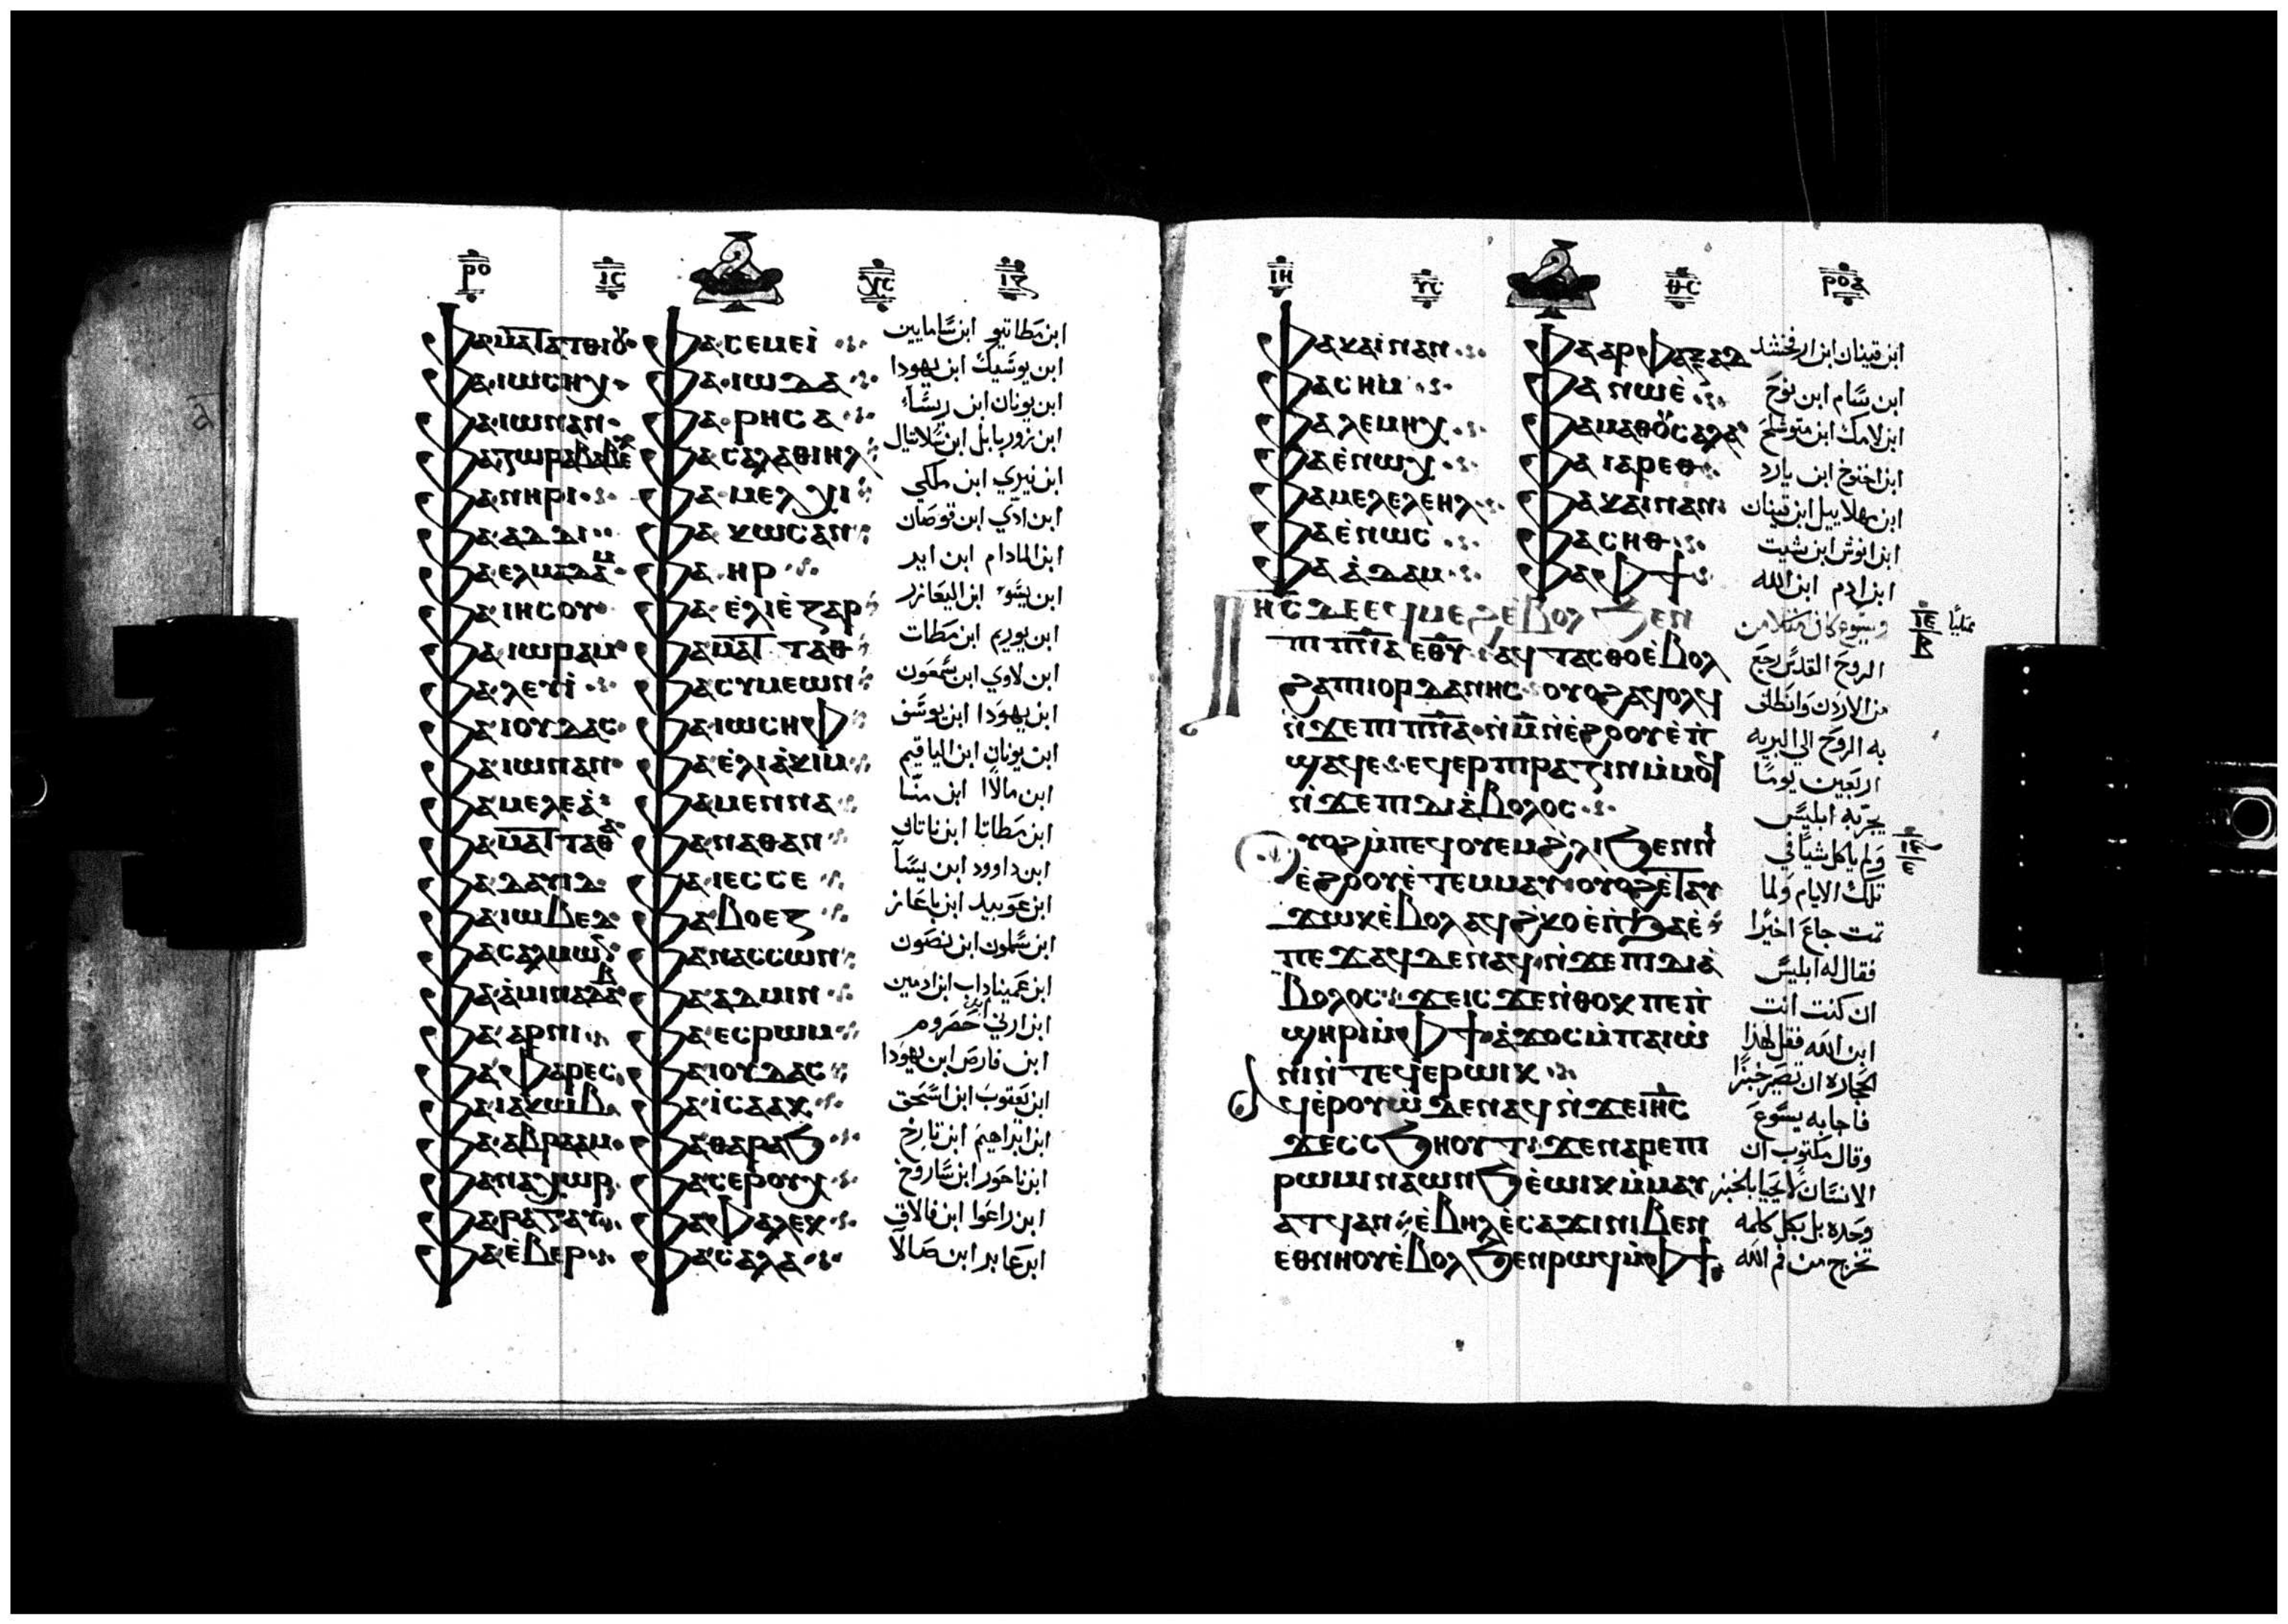 ⲣⲟ ⲓⲥ ⲭⲥ ⲓⲍ
ⲫⲁⲙⲁⲧⲁⲑⲓⲟⲩ ⲫⲁⲥⲉⲙⲉⲓ̀ ابن مطاتيو ابن سامايين
ⲫⲁⲓⲱⲥⲏⲭ ⲫⲁⲓⲱⲇⲁ ابن يوسيك ابن يهودا
ⲫⲁⲓⲱⲛⲁⲛ ⲫⲁⲣⲏⲥⲁ ابن يونان ابن ريسا
ⲫⲁⲍⲱⲣⲁⲃⲁⲃⲉⲗ ⲫⲁⲥⲁⲗⲁⲑⲓⲏⲗ ابن زوربابل ابن سلاتيال
ⲫⲁⲛⲏⲣⲓ ⲫⲁⲙⲉⲗⲭⲓ ابن نيري ابن ملكي
ⲫⲁⲁⲇⲇⲓ ⲫⲁⲕⲱⲥⲁⲛ ابن ادي ابن قوصان
ⲫⲁⲉⲗⲙⲁⲇⲁⲙ ⲫⲁⲏⲣ ابن المادام ابن اير
ⲫⲁⲓⲏⲥⲟⲩ ⲫⲁⲉ̀ⲗⲓⲉ̀ⲍⲁⲣ ابن يسو ابن اليعازر
ⲫⲁⲓⲱⲣⲁⲙ ⲫⲁⲙⲁⲧⲧⲁⲑ ابن يوريم ابن مطات
ⲫⲁⲗⲉⲩⲓ̀ ⲫⲁⲥⲩⲙⲉⲱⲛ ابن لاوي ابن سمعون
ⲫⲁⲓⲟⲩⲇⲁⲥ ⲫⲁⲓⲱⲥⲏⲫ ابن يهودا ابن يوسف
ⲫⲁⲓⲱⲛⲁⲛ ⲫⲁⲉ̀ⲗⲓⲁ̀ⲕⲓⲙ ابن يونان ابن الياقيم
ⲫⲁⲙⲉⲗⲉⲁ̀ ⲫⲁⲙⲉⲛⲛⲁ ابن مالاا ابن منا
ⲫⲁⲙⲁⲧⲧⲁⲑⲁ ⲫⲁⲛⲁⲑⲁⲛ ابن مطاتا ابن ناتان
ⲫⲁⲇⲁⲩⲓⲇ ⲫⲁⲓⲉⲥⲥⲉ ابن داوود ابن يسا
ⲫⲁⲓⲱⲃⲉⲇ ⲫⲁⲃⲟⲉⲍ ابن عوبيد ابن باعاز
ⲫⲁⲥⲁⲗⲙⲱⲛ ⲫⲁⲛⲁⲥⲥⲱⲛ ابن سلمون ابن نصون
ⲫⲁⲁ̀ⲙⲓⲛⲁⲇⲁⲃ ⲫⲁⲁⲇⲙⲓⲛ ابن عميناداب ابن ادمين
ⲫⲁⲁⲣⲛⲓ ⲫⲁⲉⲥⲣⲱⲙ ابن ارني ابن حصروم
ⲫⲁⲫⲁⲣⲉⲥ ⲫⲁⲓⲟⲩⲇⲁⲥ ابن فارص ابن يهودا
ⲫⲁⲓⲁⲕⲱⲃ ⲫⲁⲓⲥⲁⲁⲕ ابن يعقوب ابن اسحق
ⲫⲁⲁⲃⲣⲁⲁⲙ ⲫⲁⲑⲁⲣⲁϧ ابن ابراهيم ابن تارخ
ⲫⲁⲛⲁⲭⲱⲣ ⲫⲁⲥⲉⲣⲟⲩⲭ ابن ناحور ابن ساروخ
ⲫⲁⲣⲁⲅⲁⲩ ⲫⲁⲫⲁⲗⲉⲕ ابن راعوا ابن فالاق
ⲫⲁⲉ̀ⲃⲉⲣ ⲫⲁⲥⲁⲗⲁ ابن عابر ابن صالا
ⲓⲏ ⲩⲥ ⲑⲥ ⲣⲟⲁ
ⲫⲁⲕⲁⲓⲛⲁⲛ ⲫⲁⲁⲣⲫⲁⲝⲁⲇ ابن قينان ابن ارفخشد
ⲫⲁⲥⲏⲙ ⲫⲁⲛⲱⲉ̀ ابن سام ابن نوح
ⲫⲁⲗⲉⲙⲏⲭ ⲫⲁⲙⲁⲑⲟⲩⲥⲁⲗⲁ ابن لامك ابن متوشلح
ⲫⲁⲉ̀ⲛⲱⲭ ⲫⲁⲓⲁⲣⲉⲑ ابن اخنوخ ابن يارد
ⲫⲁⲙⲉⲗⲉⲗⲉⲏⲗ ⲫⲁⲕⲁⲓⲛⲁⲛ ابن مهلاييل ابن قينان
ⲫⲁⲉ̀ⲛⲱⲥ ⲫⲁⲥⲏⲑ ابن انوش ابن شيت
ⲫⲁⲁ̀ⲇⲁⲙ ⲫⲁⲫϯ ابن ادم ابن الله
ⲓⲏⲥ ⲇⲉ ⲉϥⲙⲉϩ ⲉ̀ⲃⲟⲗ ϧⲉⲛ ويسوع كان ممتليا من
ⲡⲓⲡⲛⲁ ⲉⲑⲩ ⲁϥⲧⲁⲥⲑⲟ ⲉ̀ⲃⲟⲗ الروح القدس رجع
ϩⲁ ⲡⲓⲓⲟⲣⲇⲁⲛⲏⲥ ⲟⲩⲟϩ ⲁϥⲟⲗϥ من الاردن وانطلق
ⲛ̀ϫⲉ ⲡⲓⲡⲛⲁ ⲛ̀ⲙ ⲛ̀ⲉ̀ϩⲟⲟⲩ ⲉ̀ⲡ به الروح الي البريه
ϣⲁϥⲉ ⲉϥⲉⲣⲡⲓⲣⲁⲍⲓⲛ ⲙ̀ⲙⲟϥ اربعين يوما
ⲛ̀ϫⲉ ⲡⲓⲇⲓⲁ̀ⲃⲟⲗⲟⲥ يجربه ابليس
ⲟⲩⲟϩ ⲙ̀ⲡⲉϥⲟⲩⲉⲙ ϩⲗⲓ ϧⲉⲛ ⲛⲓ ولم ياكل شيا في
ⲉ̀ϩⲟⲟⲩ ⲉ̀ⲧⲉⲙⲙⲁⲩ ⲟⲩⲟϩ ⲉ̀ⲧⲁⲩ تلك الايام ولما
ϫⲱⲕ ⲉ̀ⲃⲟⲗ ⲁϥϩⲕⲟ ⲉ̀ⲡϧⲁⲉ̀ تمت جاع اخيرا
ⲡⲉϫⲁϥ ⲇⲉ ⲛⲁϥ ⲛ̀ϫⲉ ⲡⲓⲇⲓⲁ̀ فقال له ابليس
ⲃⲟⲗⲟⲥ ϫⲉ ⲓⲥϫⲉ ⲛ̀ⲑⲟⲕ ⲡⲉ ⲡ̀ ان كنت انت
ϣⲏⲣⲓ ⲙ̀ⲫϯ ⲁ̀ϫⲟⲥ ⲙ̀ⲡⲁⲓⲱ̀ ابن الله فقل لهذا
ⲛⲓ ⲛ̀ⲧⲉϥⲉⲣⲱⲓⲕ الحجاره ان تصير خبزا
ⲁϥⲉ̀ⲣⲟⲩⲱ̀ ⲇⲉ ⲛⲁϥ ⲛ̀ϫⲉ ⲓⲏⲥ فاجابه يسوع
ϫⲉ ⲥⲥϧⲏⲟⲩⲧ ϫⲉ ⲛⲁⲣⲉ ⲡⲓ وقال مكتوب ان
ⲣⲱⲙⲓ ⲛⲁⲱⲛϧ ⲉ̀ⲱⲓⲕ ⲙ̀ⲙⲁⲩ الانسان لا يحيا بالخبز
ⲁⲧϥ ⲁⲛ ⲉ̀ⲃⲏⲗ ⲉ̀ⲥⲁϫⲓ ⲛⲓⲃⲉⲛ وحده بل بكل كلمه
ⲉⲑⲛⲏⲟⲩ ⲉ̀ⲃⲟⲗ ϧⲉⲛ ⲣⲱϥ ⲙ̀ⲫϯ تخرج من فم الله